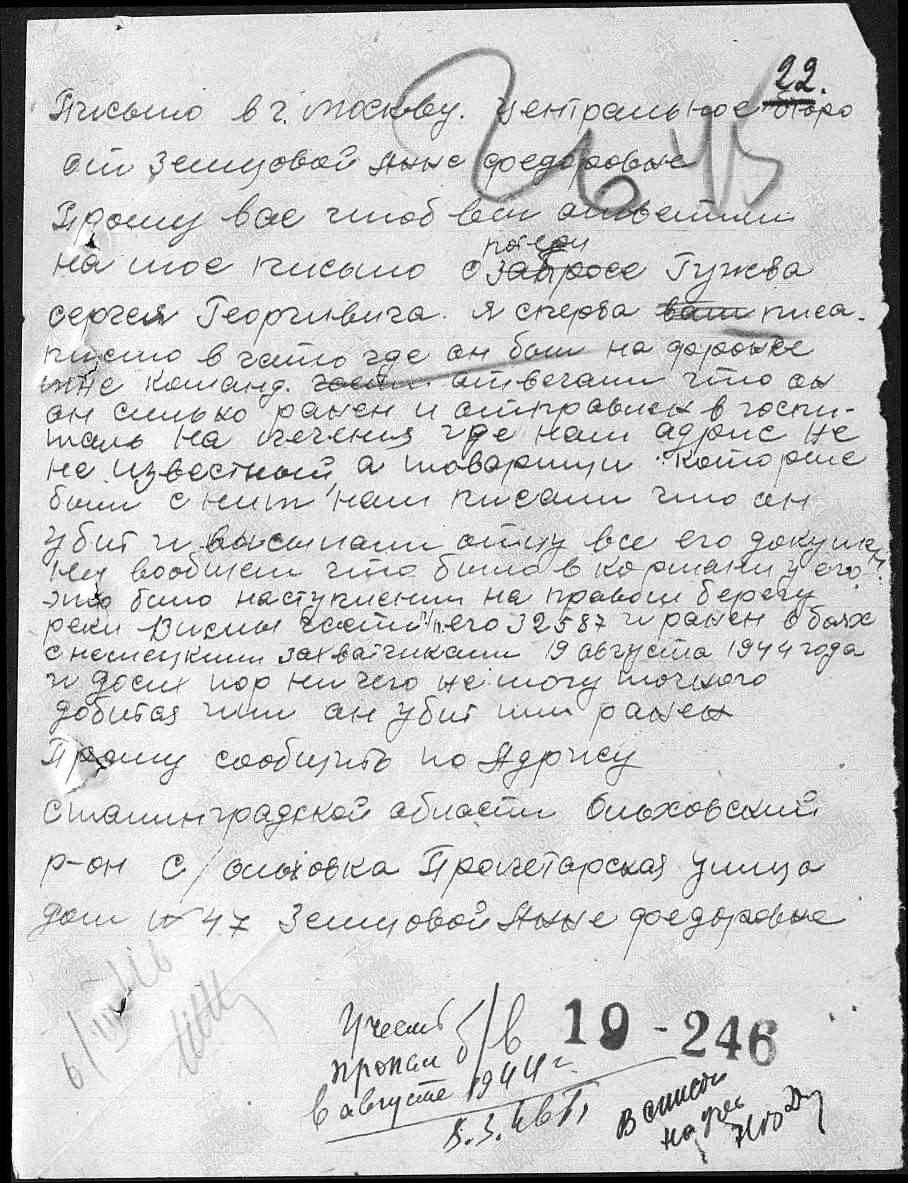 22.
Письмо в г. Москву. Центральное бюро
от Земцовой Анне Федоровне
Прошу вас чтоб вы ответили
на мое письмо о розыске Гужева
потери
Сергея Георгивича. я сперва вам писа.
писмо в часто где он был на дороже
мне команд. части. отвечали что он
он сильно ранен и отправлен в госпи-
таль на лечения где нам адрис не
не известный а товарищи которые
были с ним нам писали что он
убит и высылали отцу все его докумен
ты вообшем что было в кормани у его
это было наступлении на правом берегу
реки Вислы части п/п его 32587 и ранен в боях
с немецкими захватчиками 19 августа 1944 года
и досих пор ни чего не могу точного
добится или он убит или ранен
Прошу сообщить по Адрису
Сталинградской области Ольховский
р-он с/Ольховка Пролетарская улица
дом № 47 Земцовой Анне Федоровне
Учесть
пропал б/в
в августе 1944 г.
19-246
8.3.46 г.
В список